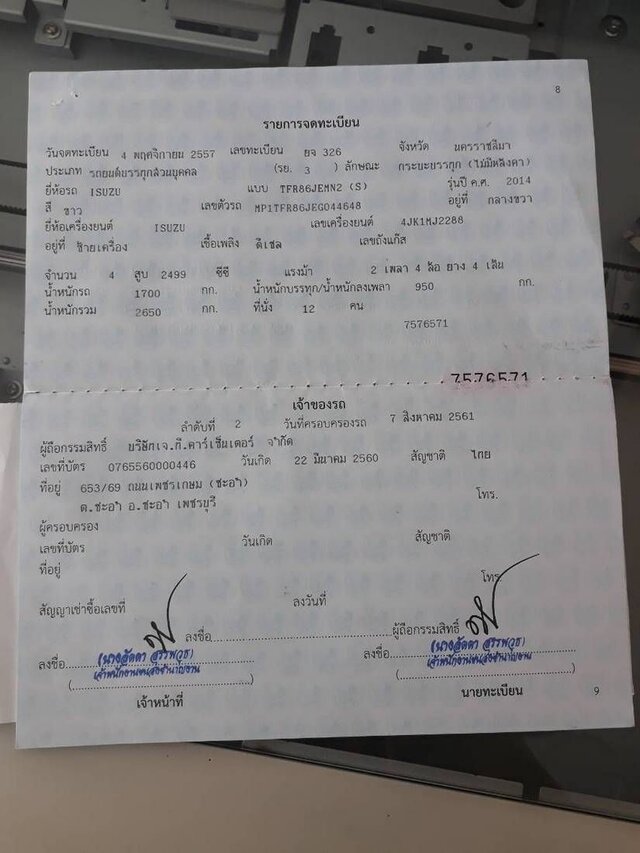 8
รายการจดทะเบียน
วันจดทะเบียน 4 พฤศจิกายน 2557 เลขทะเบียน ยจ 326 จังหวัด นครราชสีมา
ประเภท รถยนต์บรรทุกส่วนบุคคล (รย. 3 ) ลักษณะ กระบะบรรทุก (ไม่มีหลังคา)
ยี่ห้อรถ ISUZU แบบ TFR86JEMN2 (S) รุ่นปี ค.ศ. 2014
สี ขาว เลขตัวรถ MP1TFR86JEG044648 อยู่ที่ กลางขวา
ยี่ห้อเครื่องยนต์ ISUZU เลขเครื่องยนต์ 4JK1MJ2288
อยู่ที่ ซ้ายเครื่อง เชื้อเพลิง ดีเซล เลขถังแก๊ส
จำนวน 4 สูบ 2499 ซีซี แรงม้า 2 เพลา 4 ล้อ ยาง 4 เส้น
น้ำหนักรถ 1700 กก. น้ำหนักบรรทุก/น้ำหนักลงเพลา 950 กก.
น้ำหนักรวม 2650 กก. ที่นั่ง 12 คน
7576571
7576571
เจ้าของรถ
ลำดับที่ 2 วันที่ครอบครองรถ 7 สิงหาคม 2561
ผู้ถือกรรมสิทธิ์ บริษัทเจ.ที.คาร์เซ็นเตอร์ จำกัด
เลขที่บัตร 0765560000446 วันเกิด 22 มีนาคม 2560 สัญชาติ ไทย
ที่อยู่ 653/69 ถนนเพชรเกษม (ชะอำ)
ต.ชะอำ อ.ชะอำ เพชรบุรี โทร.
ผู้ครอบครอง
เลขที่บัตร วันเกิด สัญชาติ
ที่อยู่
โทร.
สัญญาเช่าซื้อเลขที่ ลงวันที่
ลงชื่อ ผู้ถือกรรมสิทธิ์
ลงชื่อ (นางลัดดา สรรพวุธ) ลงชื่อ (นางลัดดา สรรพวุธ)
เจ้าพนักงานขนส่งชำนาญงาน เจ้าพนักงานขนส่งชำนาญงาน
เจ้าหน้าที่ นายทะเบียน
9